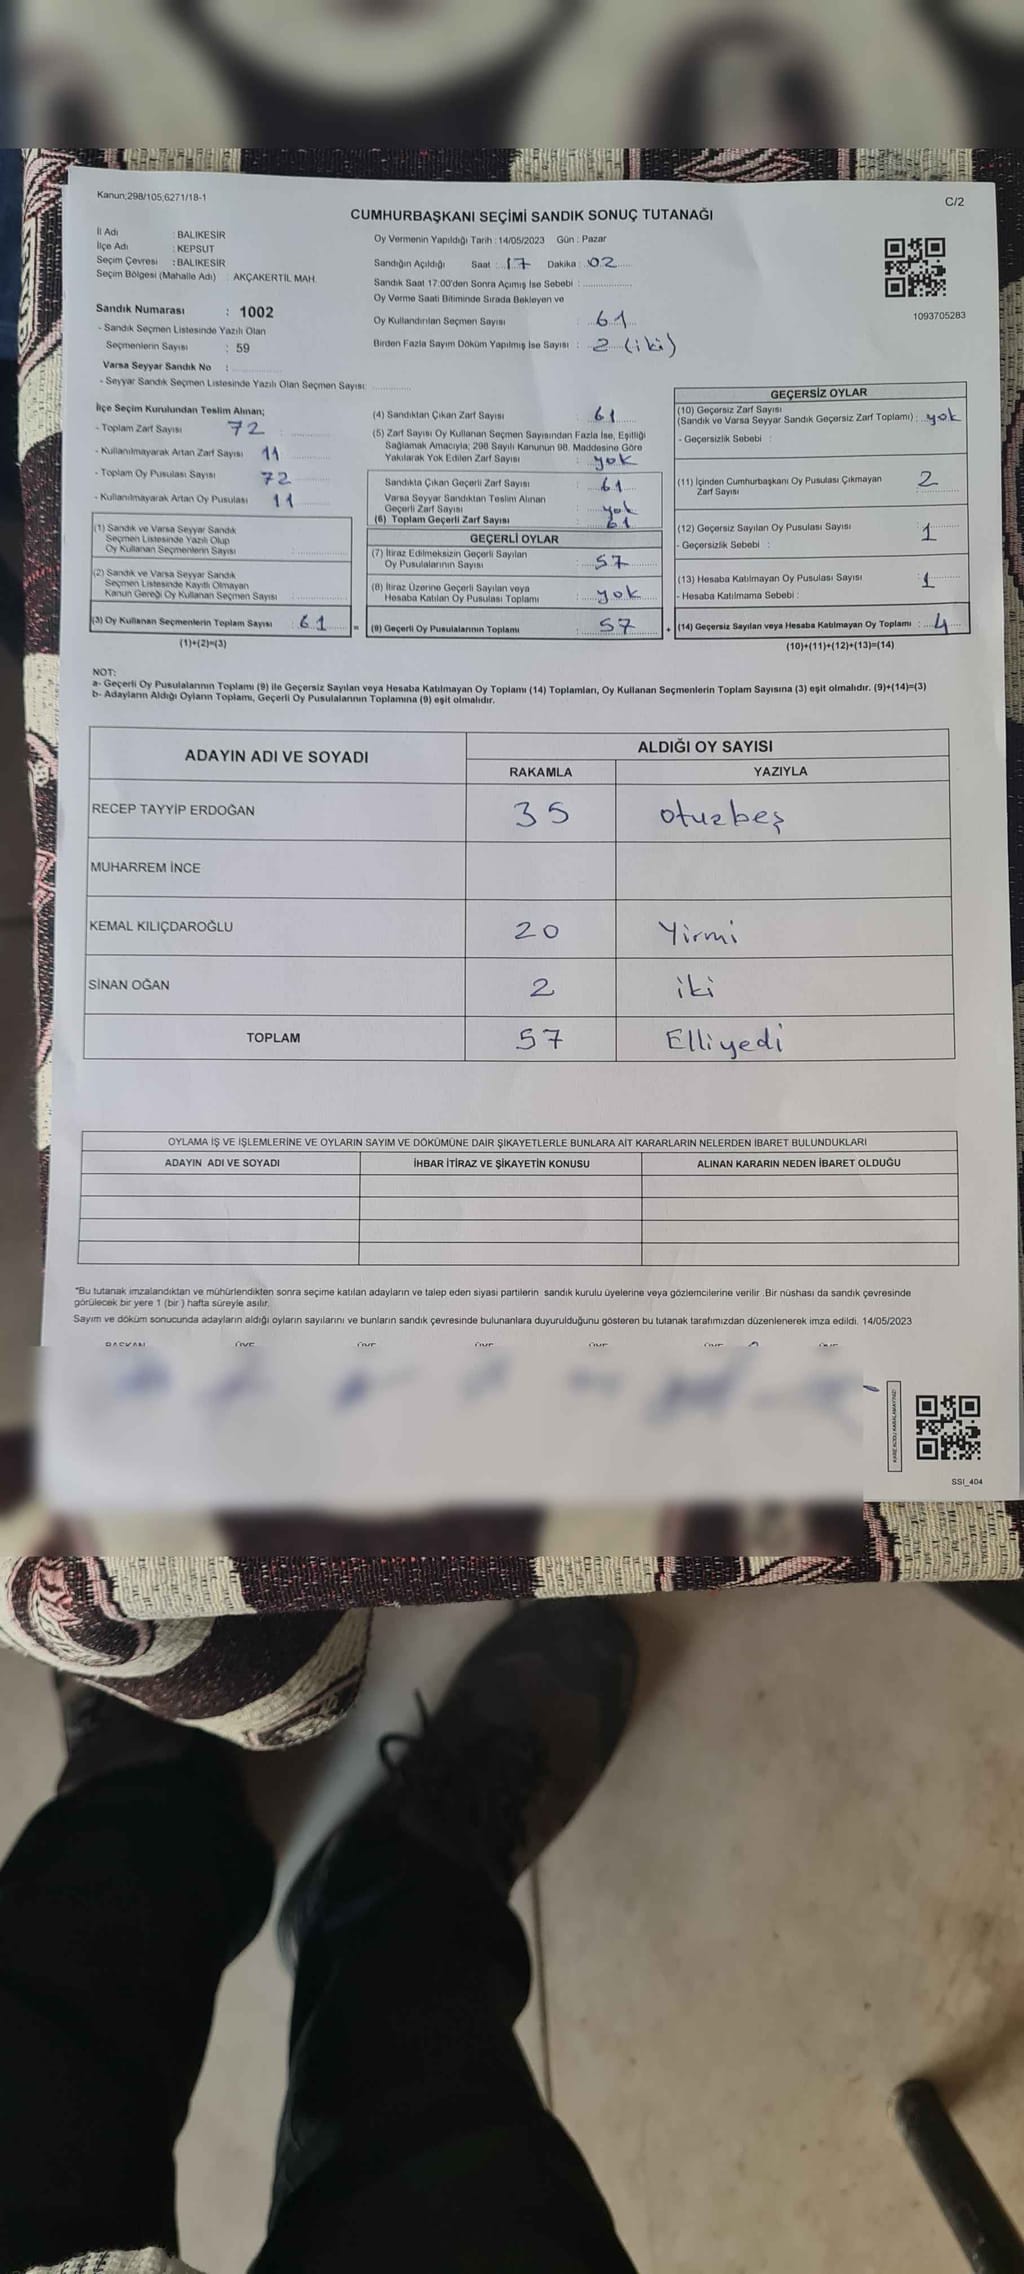 Kanun;298/105,6271/18-1
C/2
CUMHURBAŞKANI SEÇİMİ SANDIK SONUÇ TUTANAĞI
İl Adı : BALIKESİR
İlçe Adı : KEPSUT
Seçim Çevresi : BALIKESİR
Seçim Bölgesi (Mahalle Adı) : AKÇAKERTİL MAH.
Oy Vermenin Yapıldığı Tarih : 14/05/2023 Gün : Pazar
Sandığın Açıldığı Saat : 17 Dakika : 02
Sandık Saat 17:00'den Sonra Açımış İse Sebebi :
Oy Verme Saati Bitiminde Sırada Bekleyen ve
Oy Kullandırılan Seçmen Sayısı : 61
Birden Fazla Sayım Döküm Yapılmış İse Sayısı : 2 (iki)
1093705283
Sandık Numarası : 1002
- Sandık Seçmen Listesinde Yazılı Olan
Seçmenlerin Sayısı : 59
Varsa Seyyar Sandık No :
- Seyyar Sandık Seçmen Listesinde Yazılı Olan Seçmen Sayısı:
İlçe Seçim Kurulundan Teslim Alınan;
- Toplam Zarf Sayısı 72
- Kullanılmayarak Artan Zarf Sayısı 11
- Toplam Oy Pusulası Sayısı 72
- Kullanılmayarak Artan Oy Pusulası 11
(1) Sandık ve Varsa Seyyar Sandık
Seçmen Listesinde Yazılı Olup
Oy Kullanan Seçmenlerin Sayısı :
(2) Sandık ve Varsa Seyyar Sandık
Seçmen Listesinde Kayıtlı Olmayan
Kanun Gereği Oy Kullanan Seçmen Sayısı :
(3) Oy Kullanan Seçmenlerin Toplam Sayısı : 61
(1)+(2)=(3)
(4) Sandıktan Çıkan Zarf Sayısı : 61
(5) Zarf Sayısı Oy Kullanan Seçmen Sayısından Fazla İse, Eşitliği
Sağlamak Amacıyla; 298 Sayılı Kanunun 98. Maddesine Göre
Yakılarak Yok Edilen Zarf Sayısı : yok
Sandıkta Çıkan Geçerli Zarf Sayısı : 61
Varsa Seyyar Sandıktan Teslim Alınan
Geçerli Zarf Sayısı : yok
(6) Toplam Geçerli Zarf Sayısı : 61
GEÇERLİ OYLAR
(7) İtiraz Edilmeksizin Geçerli Sayılan
Oy Pusulalarının Sayısı : 57
(8) İtiraz Üzerine Geçerli Sayılan veya
Hesaba Katılan Oy Pusulası Toplamı : yok
= (9) Geçerli Oy Pusulalarının Toplamı : 57
GEÇERSİZ OYLAR
(10) Geçersiz Zarf Sayısı
(Sandık ve Varsa Seyyar Sandık Geçersiz Zarf Toplamı) : yok
- Geçersizlik Sebebi :
(11) İçinden Cumhurbaşkanı Oy Pusulası Çıkmayan
Zarf Sayısı : 2
(12) Geçersiz Sayılan Oy Pusulası Sayısı : 1
- Geçersizlik Sebebi :
(13) Hesaba Katılmayan Oy Pusulası Sayısı : 1
- Hesaba Katılmama Sebebi :
+ (14) Geçersiz Sayılan veya Hesaba Katılmayan Oy Toplamı : 4
(10)+(11)+(12)+(13)=(14)
NOT:
a- Geçerli Oy Pusulalarının Toplamı (9) ile Geçersiz Sayılan veya Hesaba Katılmayan Oy Toplamı (14) Toplamları, Oy Kullanan Seçmenlerin Toplam Sayısına (3) eşit olmalıdır. (9)+(14)=(3)
b- Adayların Aldığı Oyların Toplamı, Geçerli Oy Pusulalarının Toplamına (9) eşit olmalıdır.
ADAYIN ADI VE SOYADI
ALDIĞI OY SAYISI
RAKAMLA YAZIYLA
RECEP TAYYİP ERDOĞAN 35 otuzbeş
MUHARREM İNCE
KEMAL KILIÇDAROĞLU 20 Yirmi
SİNAN OĞAN 2 iki
TOPLAM 57 Elliyedi
OYLAMA İŞ VE İŞLEMLERİNE VE OYLARIN SAYIM VE DÖKÜMÜNE DAİR ŞİKAYETLERLE BUNLARA AİT KARARLARIN NELERDEN İBARET BULUNDUKLARI
ADAYIN ADI VE SOYADI İHBAR İTİRAZ VE ŞİKAYETİN KONUSU ALINAN KARARIN NEDEN İBARET OLDUĞU
*Bu tutanak imzalandıktan ve mühürlendikten sonra seçime katılan adayların ve talep eden siyasi partilerin sandık kurulu üyelerine veya gözlemcilerine verilir .Bir nüshası da sandık çevresinde
görülecek bir yere 1 (bir ) hafta süreyle asılır.
Sayım ve döküm sonucunda adayların aldığı oyların sayılarını ve bunların sandık çevresinde bulunanlara duyurulduğunu gösteren bu tutanak tarafımızdan düzenlenerek imza edildi. 14/05/2023
BAŞKAN ÜYE ÜYE ÜYE ÜYE ÜYE ÜYE
SSI_404